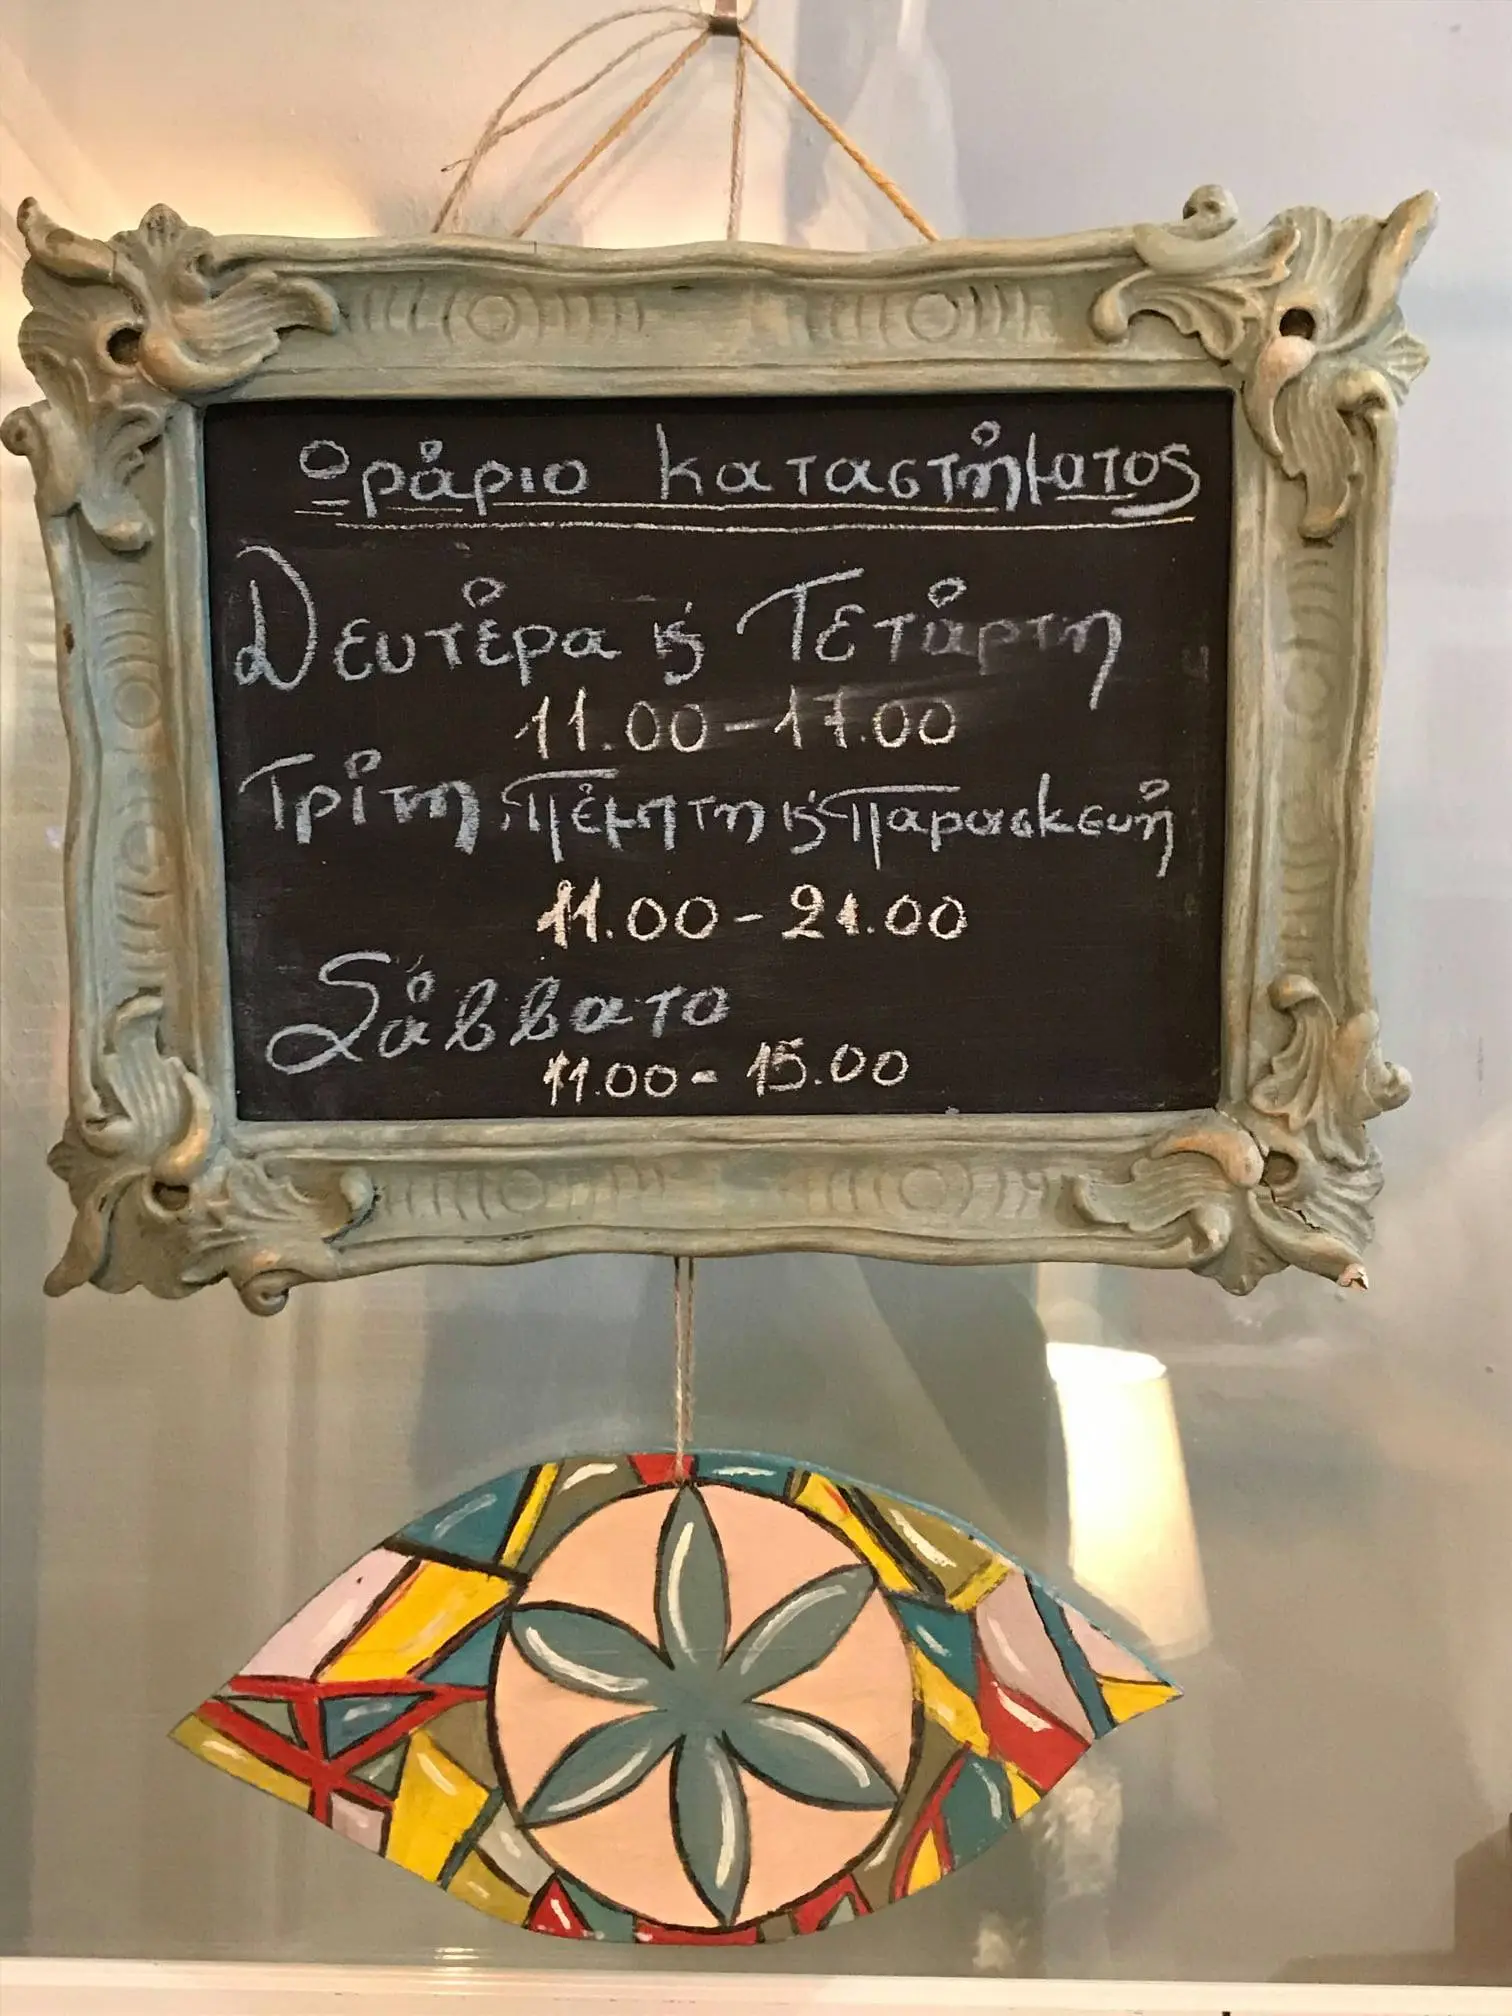 Ωράριο καταστήματος
Δευτέρα κ' Τετάρτη
11.00-17.00
Τρίτη, Πέμπτη κ' Παρασκευή
11.00-21.00
Σάββατο
11.00-15.00